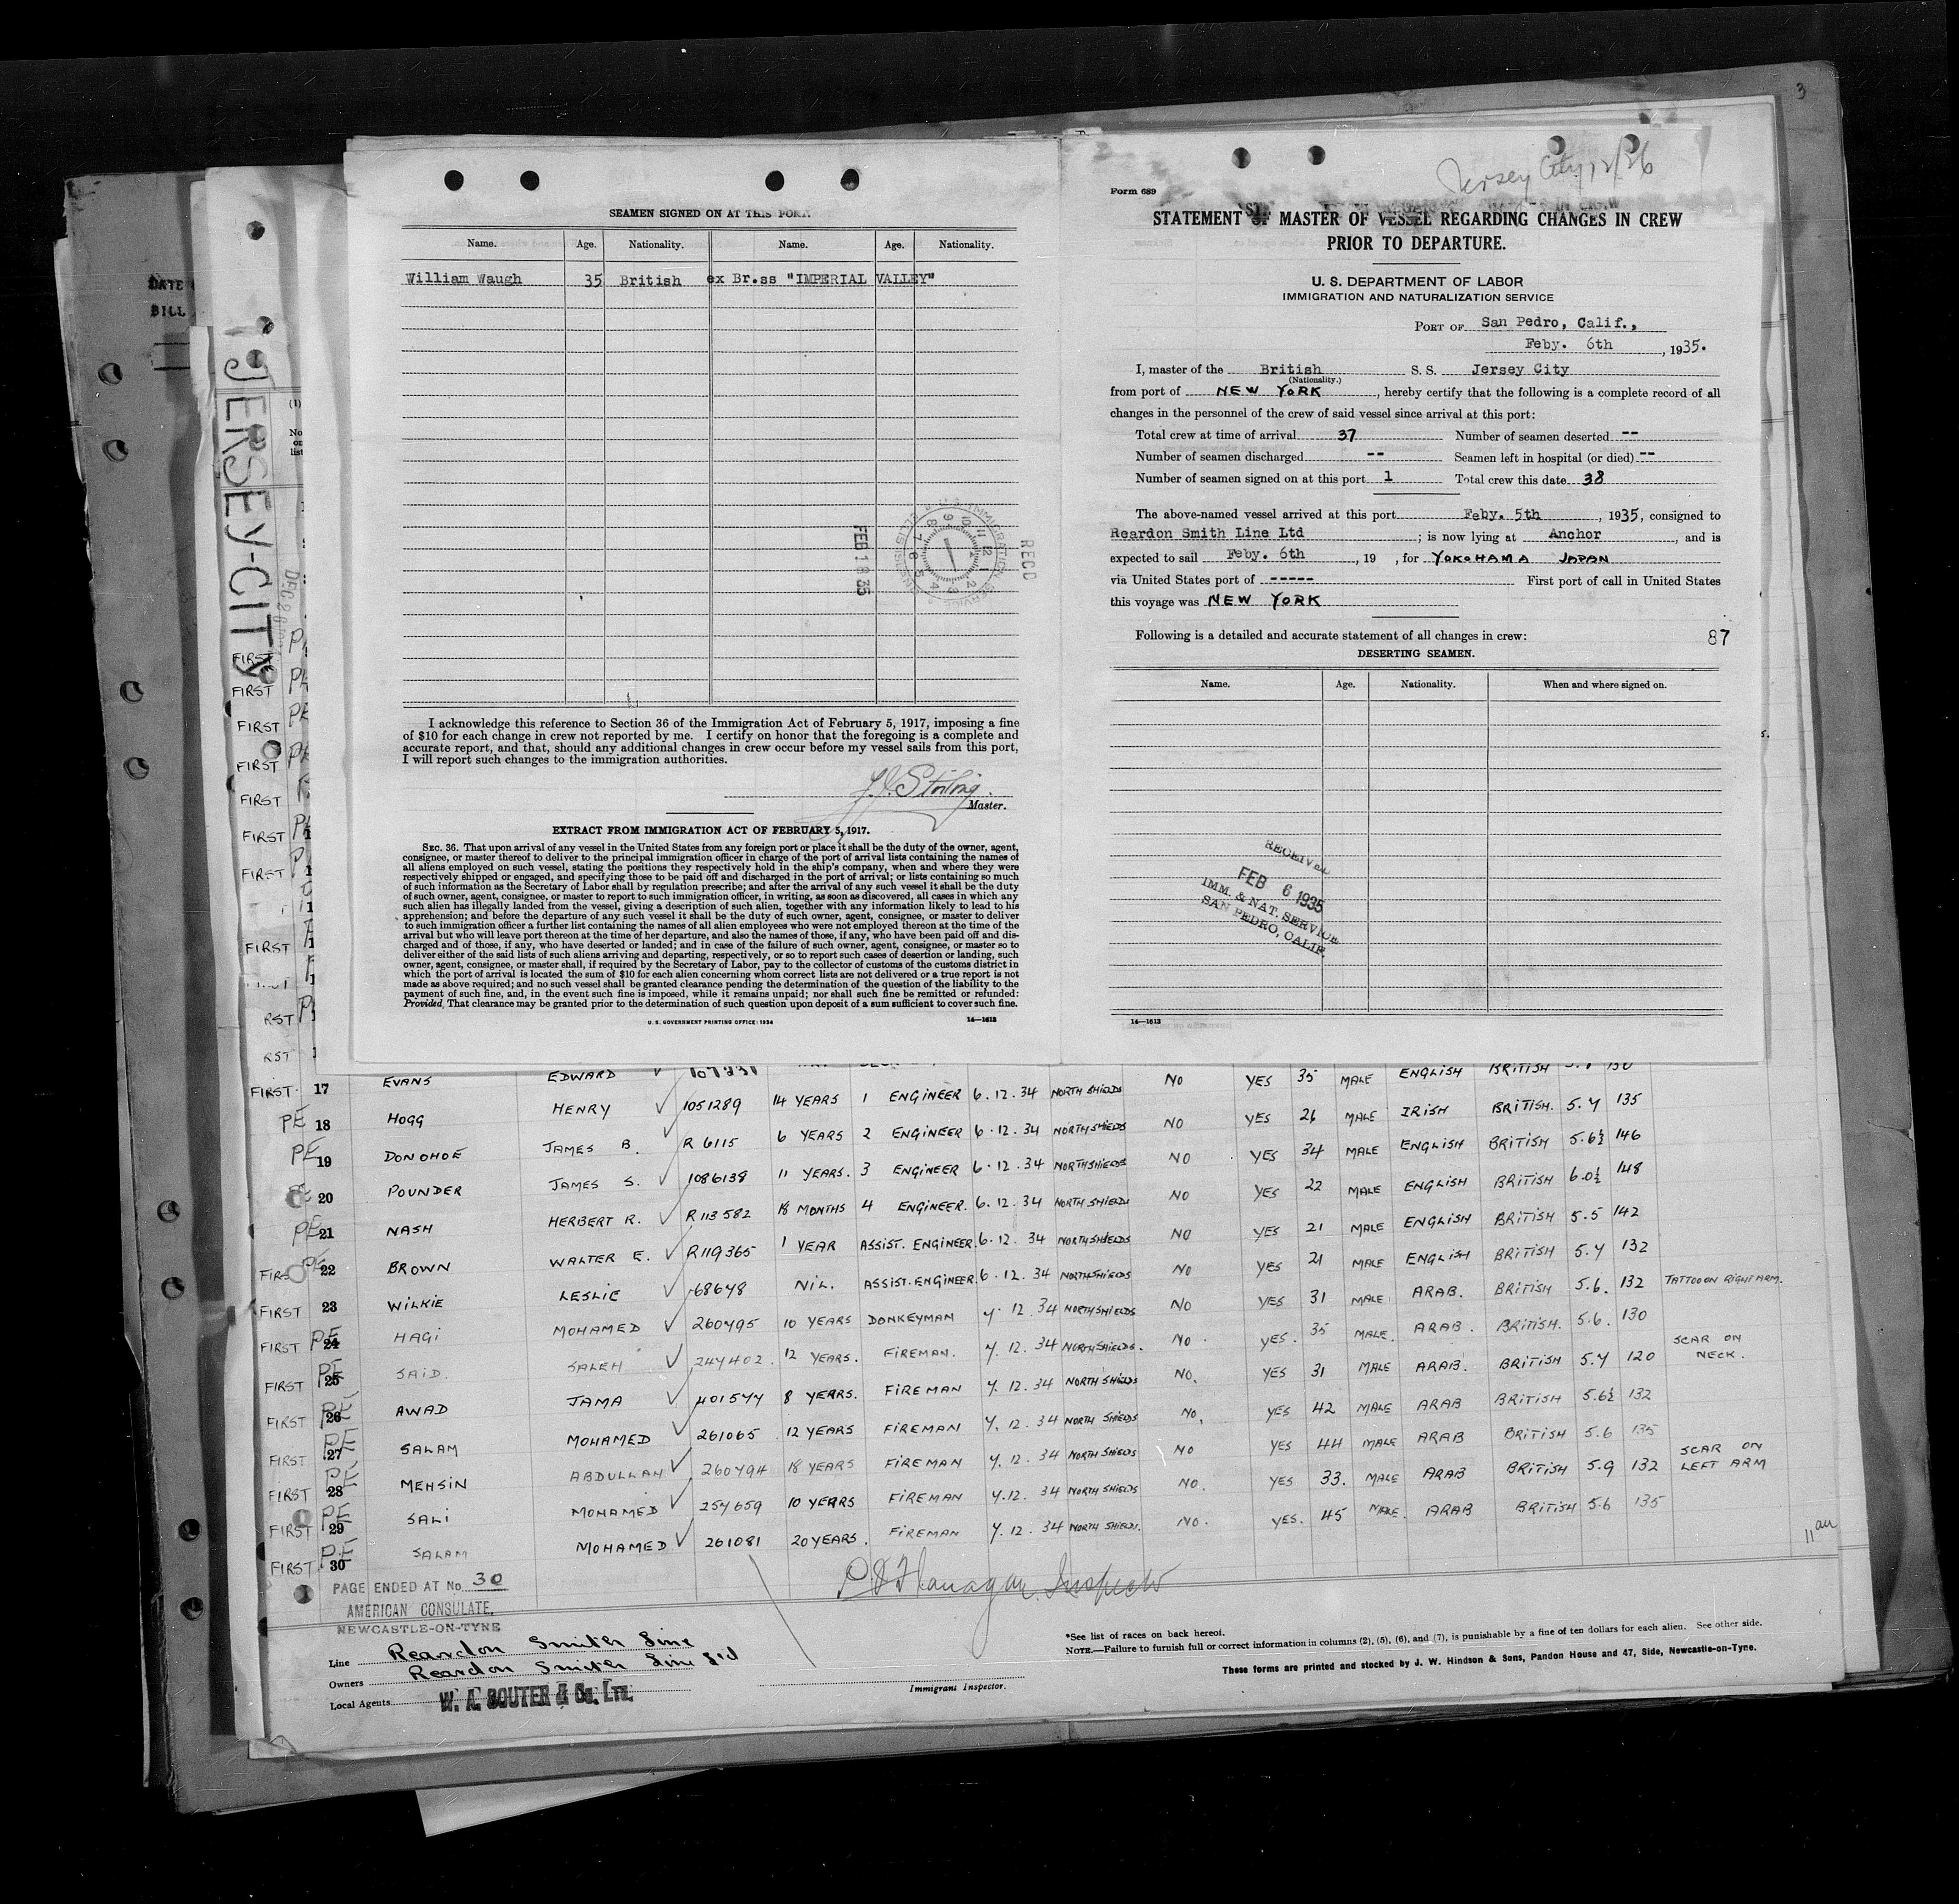 3
DATE
BILL
JERSEY-CITY
SEAMEN SIGNED ON AT THIS PORT
Name. Age. Nationality. Name. Age. Nationality.
William Waugh 35 British ex Br.ss "IMPERIAL VALLEY"
FEB 18 35
RECD
I acknowledge this reference to Section 36 of the Immigration Act of February 5, 1917, imposing a fine
of $10 for each change in crew not reported by me. I certify on honor that the foregoing is a complete and
accurate report, and that, should any additional changes in crew occur before my vessel sails from this port,
I will report such changes to the immigration authorities.
Master.
EXTRACT FROM IMMIGRATION ACT OF FEBRUARY 5, 1917.
SEC. 36. That upon arrival of any vessel in the United States from any foreign port or place it shall be the duty of the owner, agent,
consignee, or master thereof to deliver to the principal immigration officer in charge of the port of arrival lists containing the names of
all aliens employed on such vessel, stating the positions they respectively hold in the ship's company, when and where they were
respectively shipped or engaged, and specifying those to be paid off and discharged in the port of arrival; or lists containing so much
of such information as the Secretary of Labor shall by regulation prescribe; and after the arrival of any such vessel it shall be the duty
of such owner, agent, consignee, or master to report to such immigration officer, in writing, as soon as discovered, all cases in which any
such alien has illegally landed from the vessel, giving a description of such alien, together with any information likely to lead to his
apprehension; and before the departure of any such vessel it shall be the duty of such owner, agent, consignee, or master to deliver
to such immigration officer a further list containing the names of all alien employees who were not employed thereon at the time of the
arrival but who will leave port thereon at the time of her departure, and also the names of those, if any, who have been paid off and dis-
charged and of those, if any, who have deserted or landed; and in case of the failure of such owner, agent, consignee, or master so to
deliver either of the said lists of such aliens arriving and departing, respectively, or so to report such cases of desertion or landing, such
owner, agent, consignee, or master shall, if required by the Secretary of Labor, pay to the collector of customs of the customs district in
which the port of arrival is located the sum of $10 for each alien concerning whom correct lists are not delivered or a true report is not
made as above required; and no such vessel shall be granted clearance pending the determination of the question of the liability to the
payment of such fine, and, in the event such fine is imposed, while it remains unpaid; nor shall such fine be remitted or refunded:
Provided, That clearance may be granted prior to the determination of such question upon deposit of a sum sufficient to cover such fine.
U. S. GOVERNMENT PRINTING OFFICE: 1934 14—1613
Jersey City 12/26
Form 689
STATEMENT OF MASTER OF VESSEL REGARDING CHANGES IN CREW
PRIOR TO DEPARTURE.
U. S. DEPARTMENT OF LABOR
IMMIGRATION AND NATURALIZATION SERVICE
PORT OF San Pedro, Calif.,
Feby. 6th, 1935.
I, master of the British S. S. Jersey City
(Nationality.)
from port of NEW YORK, hereby certify that the following is a complete record of all
changes in the personnel of the crew of said vessel since arrival at this port:
Total crew at time of arrival 37 Number of seamen deserted --
Number of seamen discharged -- Seamen left in hospital (or died) --
Number of seamen signed on at this port 1 Total crew this date 38
The above-named vessel arrived at this port Feby. 5th, 1935, consigned to
Reardon Smith Line Ltd; is now lying at Anchor, and is
expected to sail Feby. 6th, 19 , for YOKOHAMA JAPAN
via United States port of ----- First port of call in United States
this voyage was NEW YORK
Following is a detailed and accurate statement of all changes in crew: 87
DESERTING SEAMEN.
Name. Age. Nationality. When and where signed on.
RECEIVED
FEB 6 1935
IMM. & NAT. SERVICE
SAN PEDRO, CALIF.
14—1613
FIRST 17 EVANS EDWARD
PE 18 HOGG HENRY 1051289 14 YEARS 1 ENGINEER 6.12.34 NORTH SHIELDS NO YES 35 MALE ENGLISH BRITISH
PE 19 DONOHOE JAMES B. R 6115 6 YEARS 2 ENGINEER 6.12.34 NORTH SHIELDS NO YES 26 MALE IRISH BRITISH. 5.7 135
PE 20 POUNDER JAMES S. 1086138 11 YEARS. 3 ENGINEER 6.12.34 NORTH SHIELDS NO YES 34 MALE ENGLISH BRITISH 5.6½ 146
PE 21 NASH HERBERT R. R 113582 18 MONTHS 4 ENGINEER. 6.12.34 NORTH SHIELDS NO YES 22 MALE ENGLISH BRITISH 6.0½ 148
FIRST PE 22 BROWN WALTER E. R119365 1 YEAR ASSIST. ENGINEER. 6.12.34 NORTH SHIELDS NO YES 21 MALE ENGLISH BRITISH 5.5 142
FIRST 23 WILKIE LESLIE 68678 NIL. ASSIST. ENGINEER. 6.12.34 NORTH SHIELDS NO YES 21 MALE ENGLISH BRITISH 5.7 132
FIRST PE 24 HAGI MOHAMED 260795 10 YEARS DONKEYMAN 7.12.34 NORTH SHIELDS NO YES 31 MALE ARAB. BRITISH 5.6. 132 TATTOO ON RIGHT ARM.
FIRST PE 25 SAID. SALEH 247402. 12 YEARS. FIREMAN. 7.12.34 NORTH SHIELDS. NO. YES. 35 MALE. ARAB. BRITISH. 5.6. 130
FIRST PE 26 AWAD JAMA 401577 8 YEARS. FIREMAN 7.12.34 NORTH SHIELDS NO. YES 31 MALE ARAB. BRITISH 5.7 120 SCAR ON NECK.
FIRST PE 27 SALAM MOHAMED 261065 12 YEARS FIREMAN 7.12.34 NORTH SHIELDS NO. YES 42 MALE ARAB BRITISH 5.6½ 132
FIRST PE 28 MEHSIN ABDULLAH 260794 18 YEARS FIREMAN 7.12.34 NORTH SHIELDS NO YES 44 MALE ARAB BRITISH 5.6 135
FIRST PE 29 SALI MOHAMED 257659 10 YEARS FIREMAN 7.12.34 NORTH SHIELDS NO. YES 33. MALE ARAB BRITISH 5.9 132 SCAR ON LEFT ARM
FIRST PE 30 SALAM MOHAMED 261081 20 YEARS. FIREMAN 7.12.34 NORTH SHIELDS. NO. YES. 45 MALE. ARAB BRITISH 5.6 135
PAGE ENDED AT No. 30
AMERICAN CONSULATE,
NEWCASTLE-ON-TYNE
Line Reardon Smith Line
Owners Reardon Smith Line Ltd
Local Agents W. A. SOUTER & Co. LTD.
Flanagan Inspector
Immigrant Inspector.
*See list of races on back hereof.
NOTE.—Failure to furnish full or correct information in columns (2), (5), (6), and (7), is punishable by a fine of ten dollars for each alien. See other side.
These forms are printed and stocked by J. W. Hindson & Sons, Pandon House and 47, Side, Newcastle-on-Tyne.